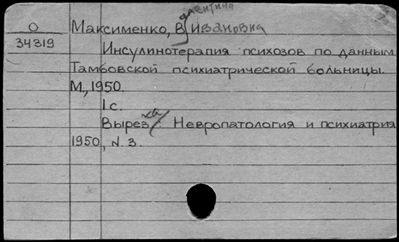 О
34319
Максименко, Валентина Ивановна
Инсулинотерапия психозов по данным
Тамбовской психиатрической больницы.
М, 1950.
1с.
Вырезка: Невропатология и психиатрия
1950, N. 3.